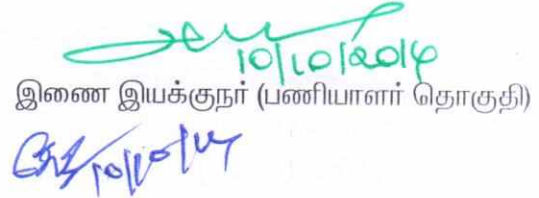 10/10/2014
இணை இயக்குநர் (பணியாளர் தொகுதி)
10/10/14